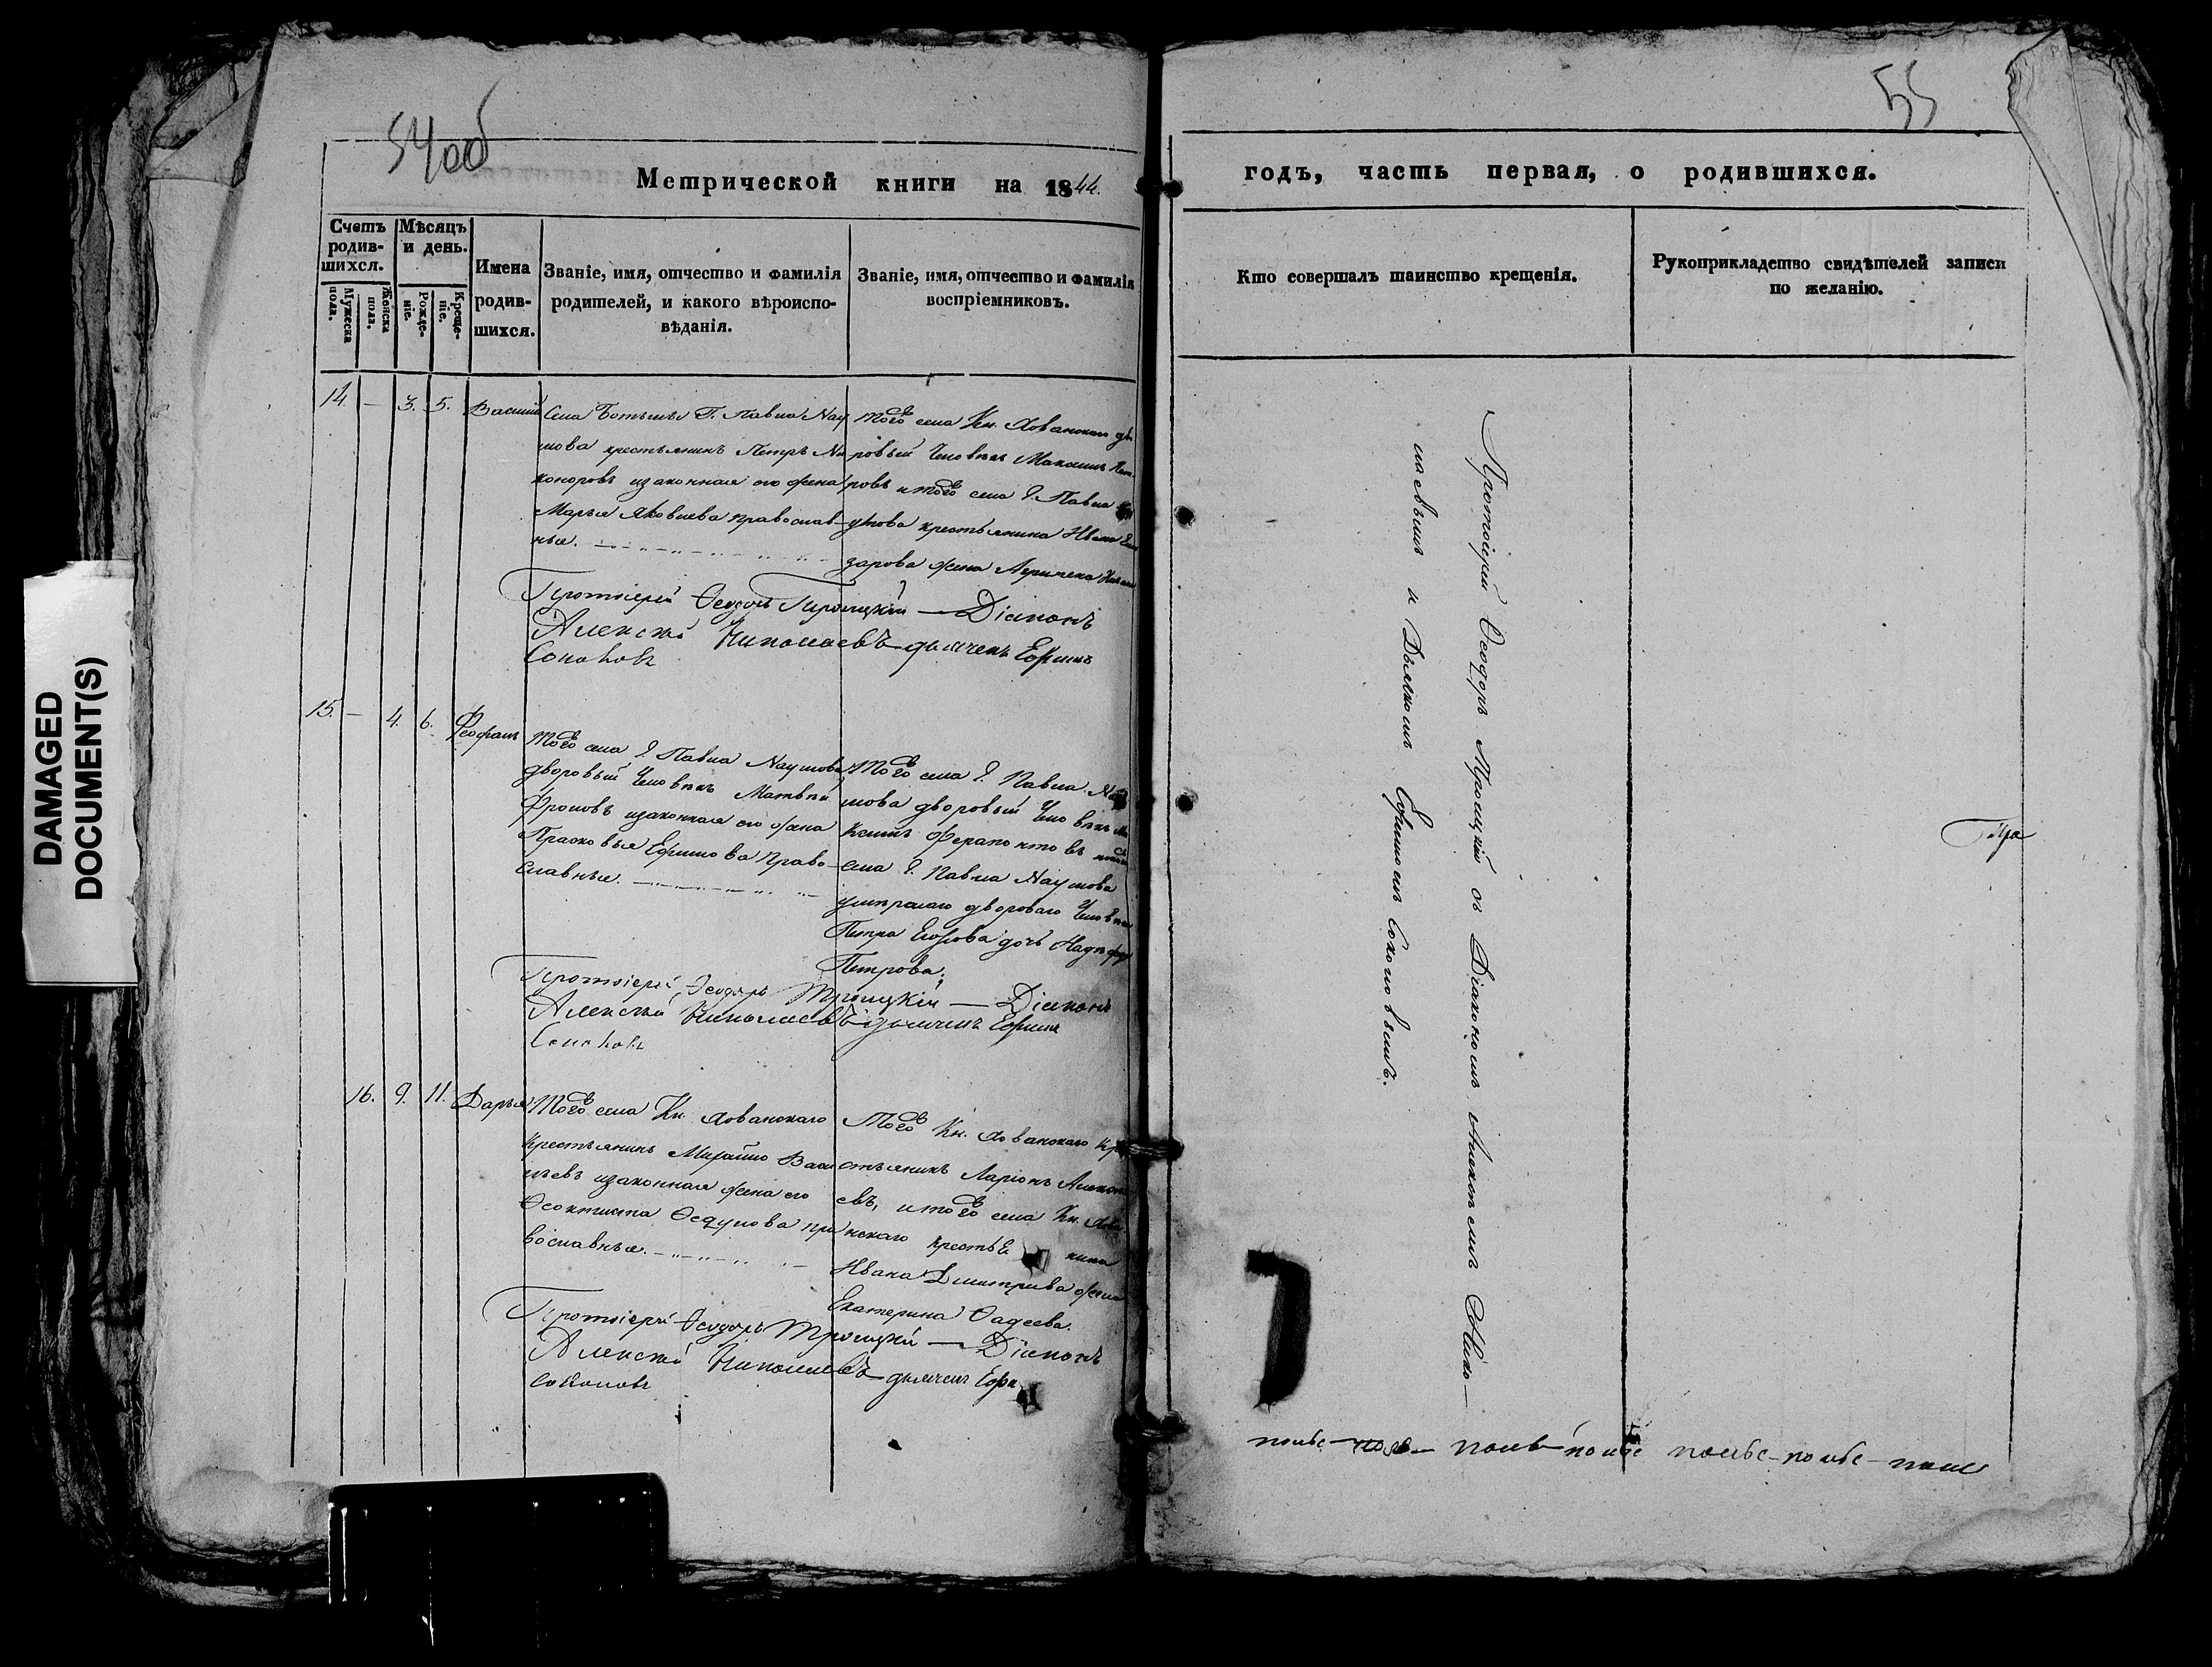 54об
Метрической книги на 1844.
Счетъ родившихся.
Мужеска пола.
Женска пола.
Мѣсяцъ и день.
Рожденіе.
Крещеніе.
Имена родившихся.
Званіе, имя, отчество и фамилія родителей, и какого вѣроисповѣданія.
Званіе, имя, отчество и фамилія воспріемниковъ.
14. — 3. 5. Василій
Села Г. Павла Нау
мова крестьянинъ Петръ Ни
коноровъ изаконная его жена
Марья Яковлева православ-
ные.
Тогожъ села Кн. Хованскаго дво
ровый Человѣкъ Максимъ
ровъ итогожъ села Г. Павла
умова крестьянина Ивана
зарова жена
Протоіерей Ѳеодоръ Троицкій — Діаконъ
Алексѣй Николаевъ дьячекъ Ефимъ
Соколовъ
15. — 4. 6. Феофанъ
Тогожъ села Г. Павла Наумова
дворовый Человѣкъ Матвѣй
Фроловъ изаконная его жена
Прасковья Ефимова право-
славные.
Тогожъ села Г. Павла На
умова дворовый Человѣкъ
Ферапонтовъ
села Г. Павла Наумова
умершаго двороваго Человѣка
Петра Егорова дочь Надежда
Петрова.
Протоіерей Ѳеодоръ Троицкій — Діаконъ
Алексѣй Николаевъ дьячекъ Ефимъ
Соколовъ
16. 9. 11. Дарья
Тогожъ села Кн. Хованскаго
Крестьянинъ Михайло Васи
льевъ изаконная жена его
Ѳеоктиста Ѳедулова пра
вославные.
Тогожъ Кн. Хованскаго Кре
стьянинъ Ларіонъ Алексѣ
евъ, итогожъ села Кн. Хова
нскаго крестьянина
Ивана Дмитріева жена
Екатерина Ѳадеева.
Протоіерей Ѳеодоръ Троицкій — Діаконъ
Алексѣй Николаевъ дьячекъ Ефи
Соколовъ
55
годъ, часть первая, о родившихся.
Кто совершалъ таинство крещенія.
Рукоприкладство свидѣтелей записи по желанію.
Протоіерей Ѳеодоръ Троицкій съ Діакономъ Алексѣемъ Нико-
лаевымъ и Дьячкомъ Ефимомъ Соколовымъ.